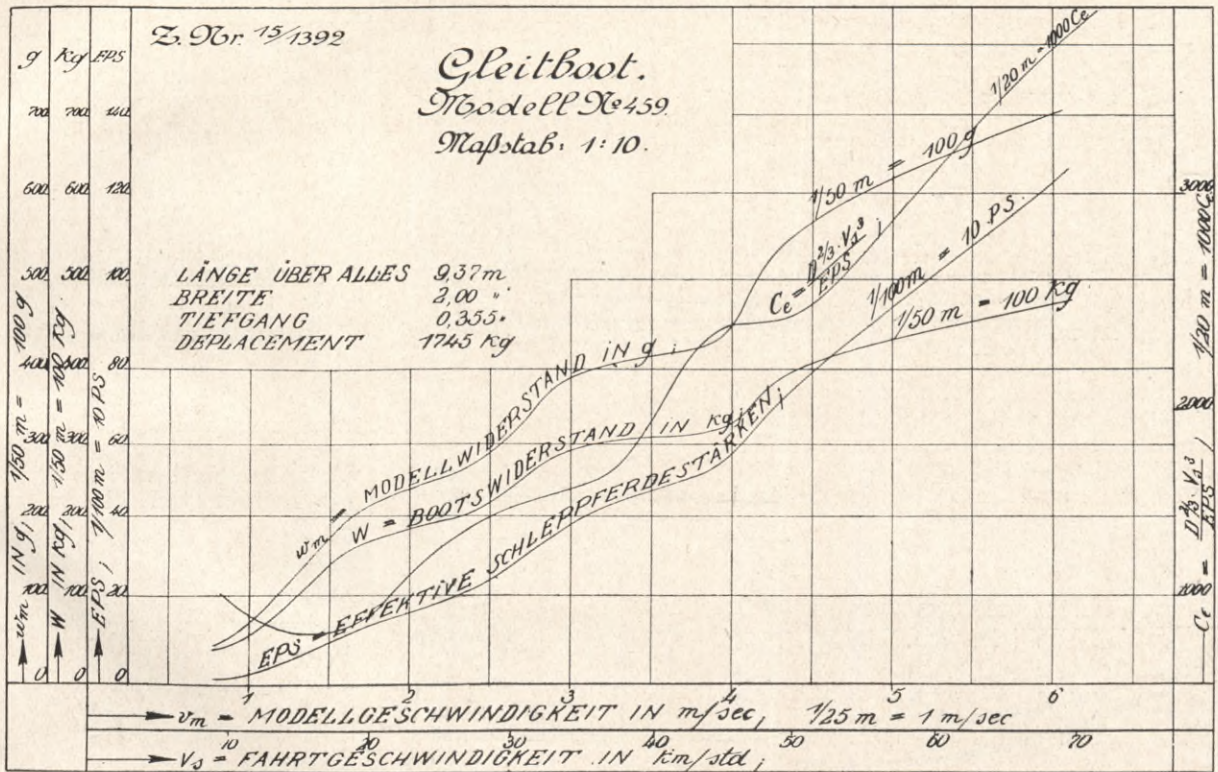 Z. Nr. 15/1392
Gleitboot.
Modell No 459.
Maßstab: 1:10.
LÄNGE ÜBER ALLES 9,37 m
BREITE 2,00 "
TIEFGANG 0,355 "
DEPLACEMENT 1745 Kg
g Kg EPS
700 700 140
600 600 120
500 500 100
400 400 80
300 300 60
200 200 40
100 100 20
0 0 0
wm IN g, 1/50 m = 100 g
W IN Kg, 1/50 m = 100 Kg.
EPS, 1/100 m = 10 PS
wm = MODELLWIDERSTAND IN g; 1/50 m = 100 g
W = BOOTSWIDERSTAND IN Kg; 1/50 m = 100 Kg
EPS = EFFEKTIVE SCHLEPPFERDESTÄRKEN; 1/100 m = 10 PS.
Ce = D^2/3 · Vs^3 / EPS; 1/20 m = 1000 Ce
3000
2000
1000
Ce = D^2/3 · Vs^3 / EPS; 1/20 m = 1000 Ce
1 2 3 4 5 6
vm = MODELLGESCHWINDIGKEIT IN m/sec, 1/25 m = 1 m/sec
10 20 30 40 50 60 70
Vs = FAHRTGESCHWINDIGKEIT IN Km/std;